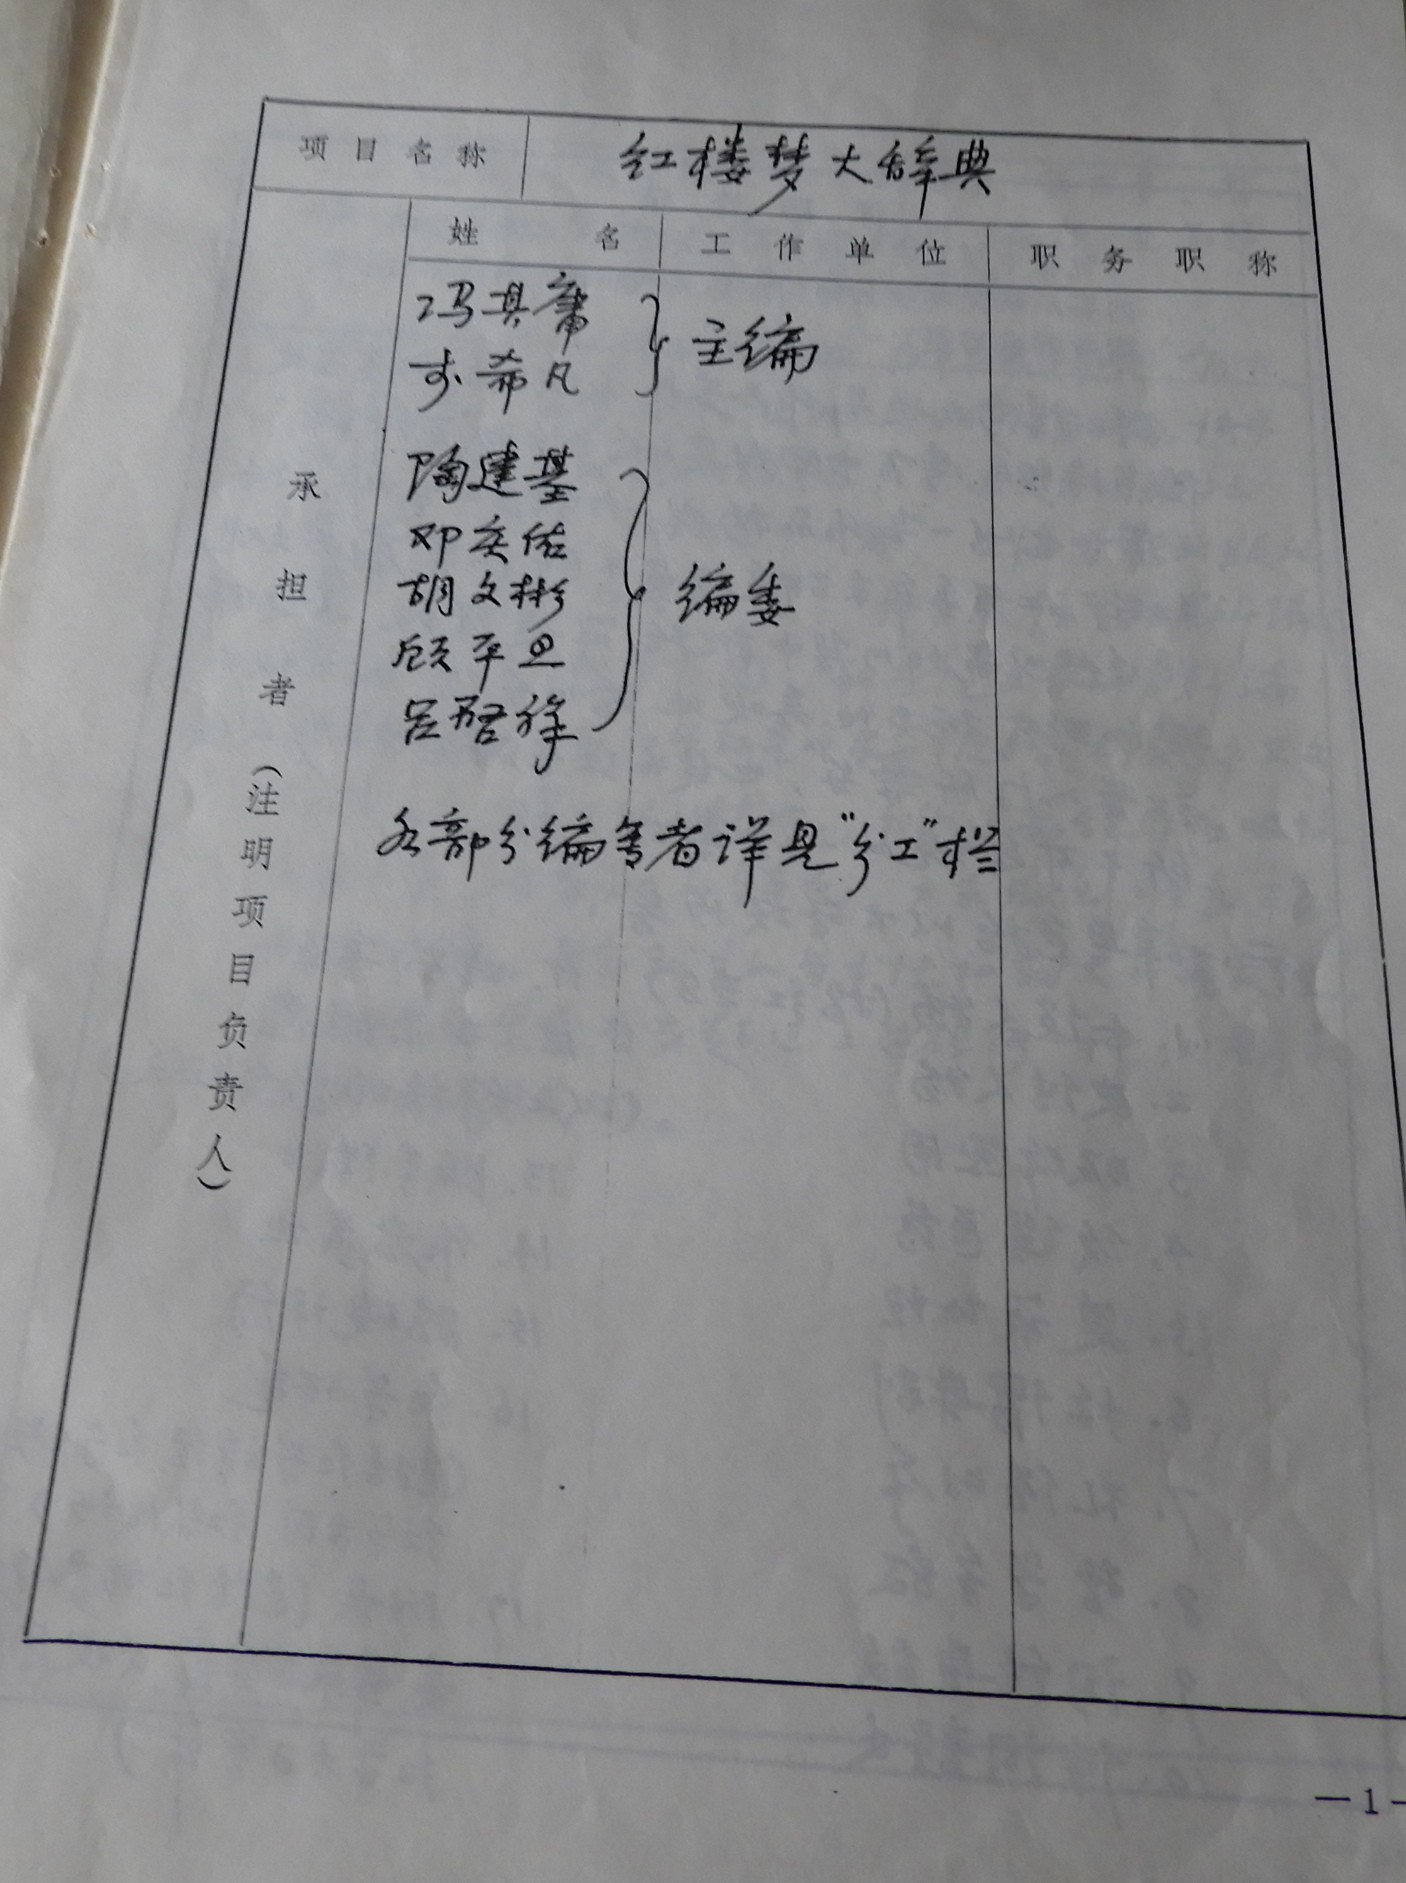 项目名称 红楼梦大辞典
姓名 工作单位 职务职称
承担者（注明项目负责人）
冯其庸
李希凡
主编
陶建基
邓庆佑
胡文彬
顾平旦
吕启祥
编委
各部分编写者详见“分工”栏
—1—